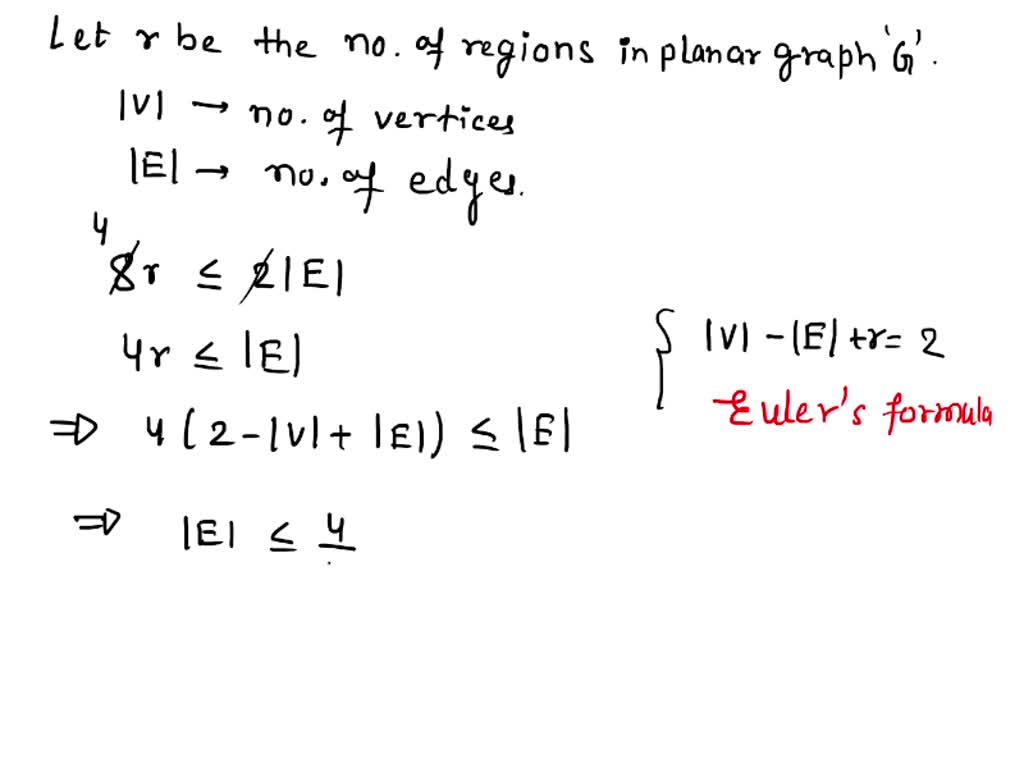 Let r be the no. of regions in planar graph 'G'.
|V| → no. of vertices
|E| → no. of edges.
4
8r ≤ 2|E|
4r ≤ |E|
{ |V| - |E| + r = 2
Euler's formula
⇒ 4(2 - |V| + |E|) ≤ |E|
⇒ |E| ≤ 4